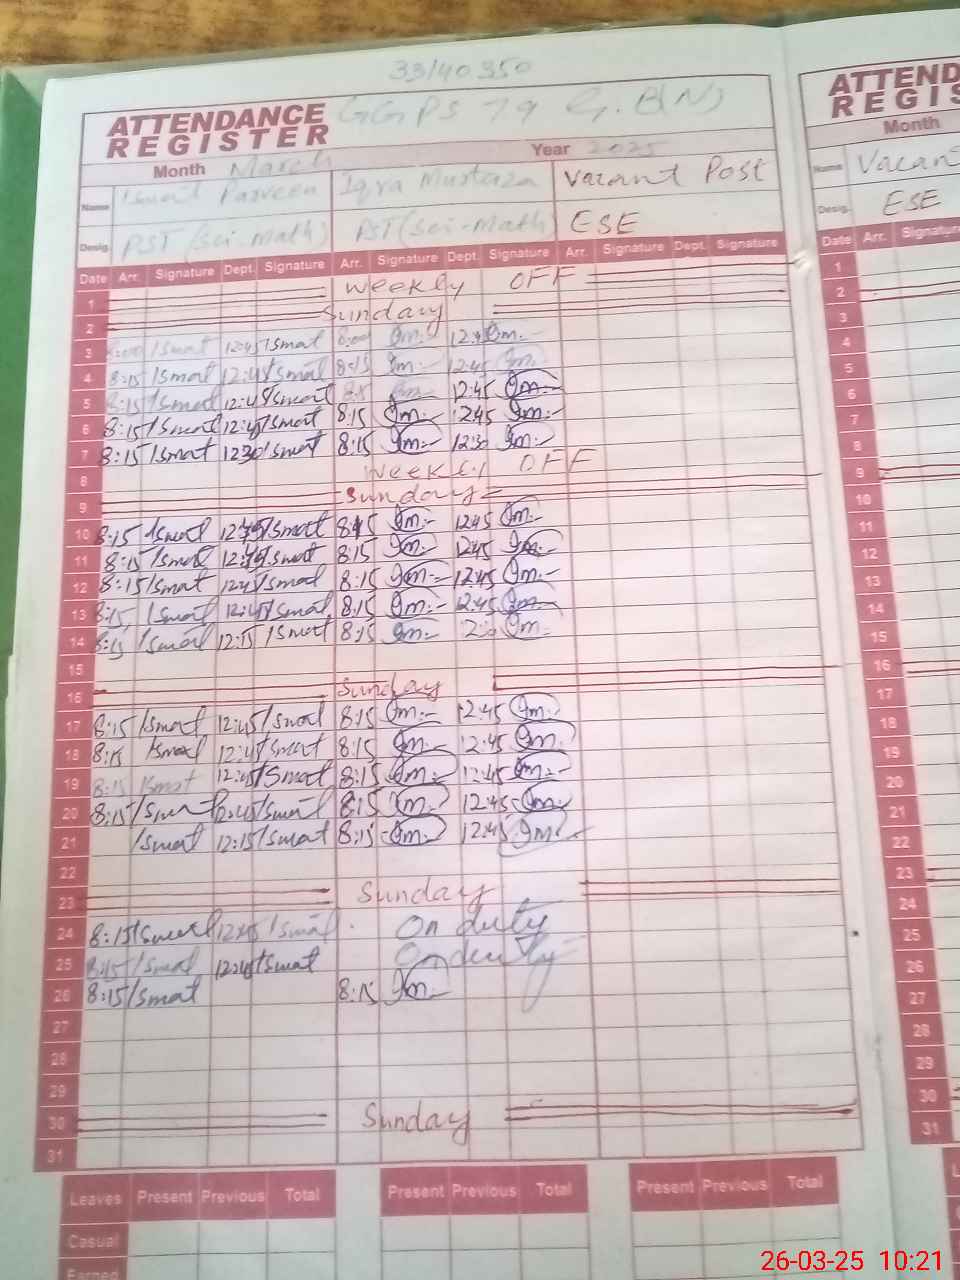 33/40350
ATTENDANCE REGISTER GGPS 79 G.B(N)
Month March Year 2025
Name Ismat Parveen Iqra Murtaza Vacant Post
Desig. PST (Sci-Math) PST (Sci-Math) ESE
Date Arr. Signature Dept. Signature Arr. Signature Dept. Signature Arr. Signature Dept. Signature
1 Weekly OFF
2 Sunday
3 8:00 Ismat 12:45 Ismat 8:00 12:45
4 8:15 Ismat 12:45 Ismat 8:15 12:45
5 8:15 Ismat 12:45 Ismat 8:15 12:45
6 8:15 Ismat 12:45 Ismat 8:15 12:45
7 8:15 Ismat 12:30 Ismat 8:15 12:30
8 Weekly OFF
9 Sunday
10 8:15 Ismat 12:45 Ismat 8:15 12:45
11 8:15 Ismat 12:45 Ismat 8:15 12:45
12 8:15 Ismat 12:45 Ismat 8:15 12:45
13 8:15 Ismat 12:45 Ismat 8:15 12:45
14 8:15 Ismat 12:15 Ismat 8:15
15
16 Sunday
17 8:15 Ismat 12:45 Ismat 8:15 12:45
18 8:15 Ismat 12:45 Ismat 8:15 12:45
19 8:15 Ismat 12:45 Ismat 8:15 12:45
20 8:15 Ismat 12:45 Ismat 8:15 12:45
21 Ismat 12:15 Ismat 8:15 12:45
22
23 Sunday
24 8:15 Ismat 12:45 Ismat On duty
25 8:15 Ismat 12:45 Ismat On duty
26 8:15 Ismat 8:15
27
28
29
30 Sunday
31
Leaves Present Previous Total Present Previous Total Present Previous Total
Casual
Earned
ATTEND
REGIS
Month
Name Vacan
Desig. ESE
Date Arr. Signature
1
2
3
4
5
6
7
8
9
10
11
12
13
14
15
16
17
18
19
20
21
22
23
24
25
26
27
28
29
30
31
26-03-25 10:21